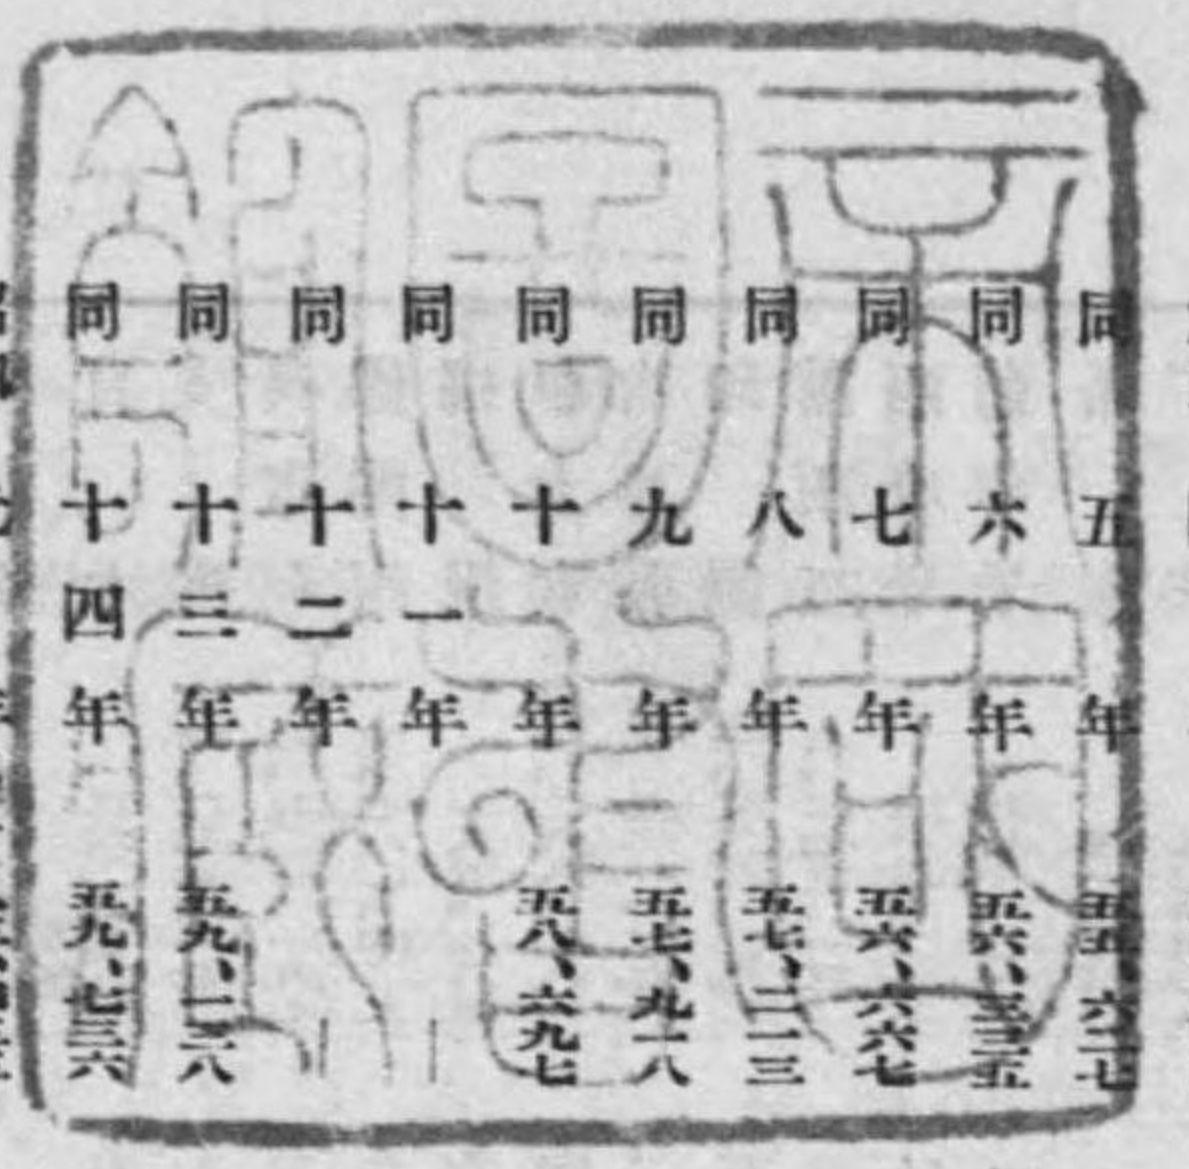 同五年五五、六二七
同六年五六、三三五
同七年五六、六六七
同八年五七、二一三
同九年五七、九一八
同十年五八、六九七
同十一年｜
同十二年｜
同十三年五九、一三八
同十四年五九、七三六
帝國
圖書
館藏